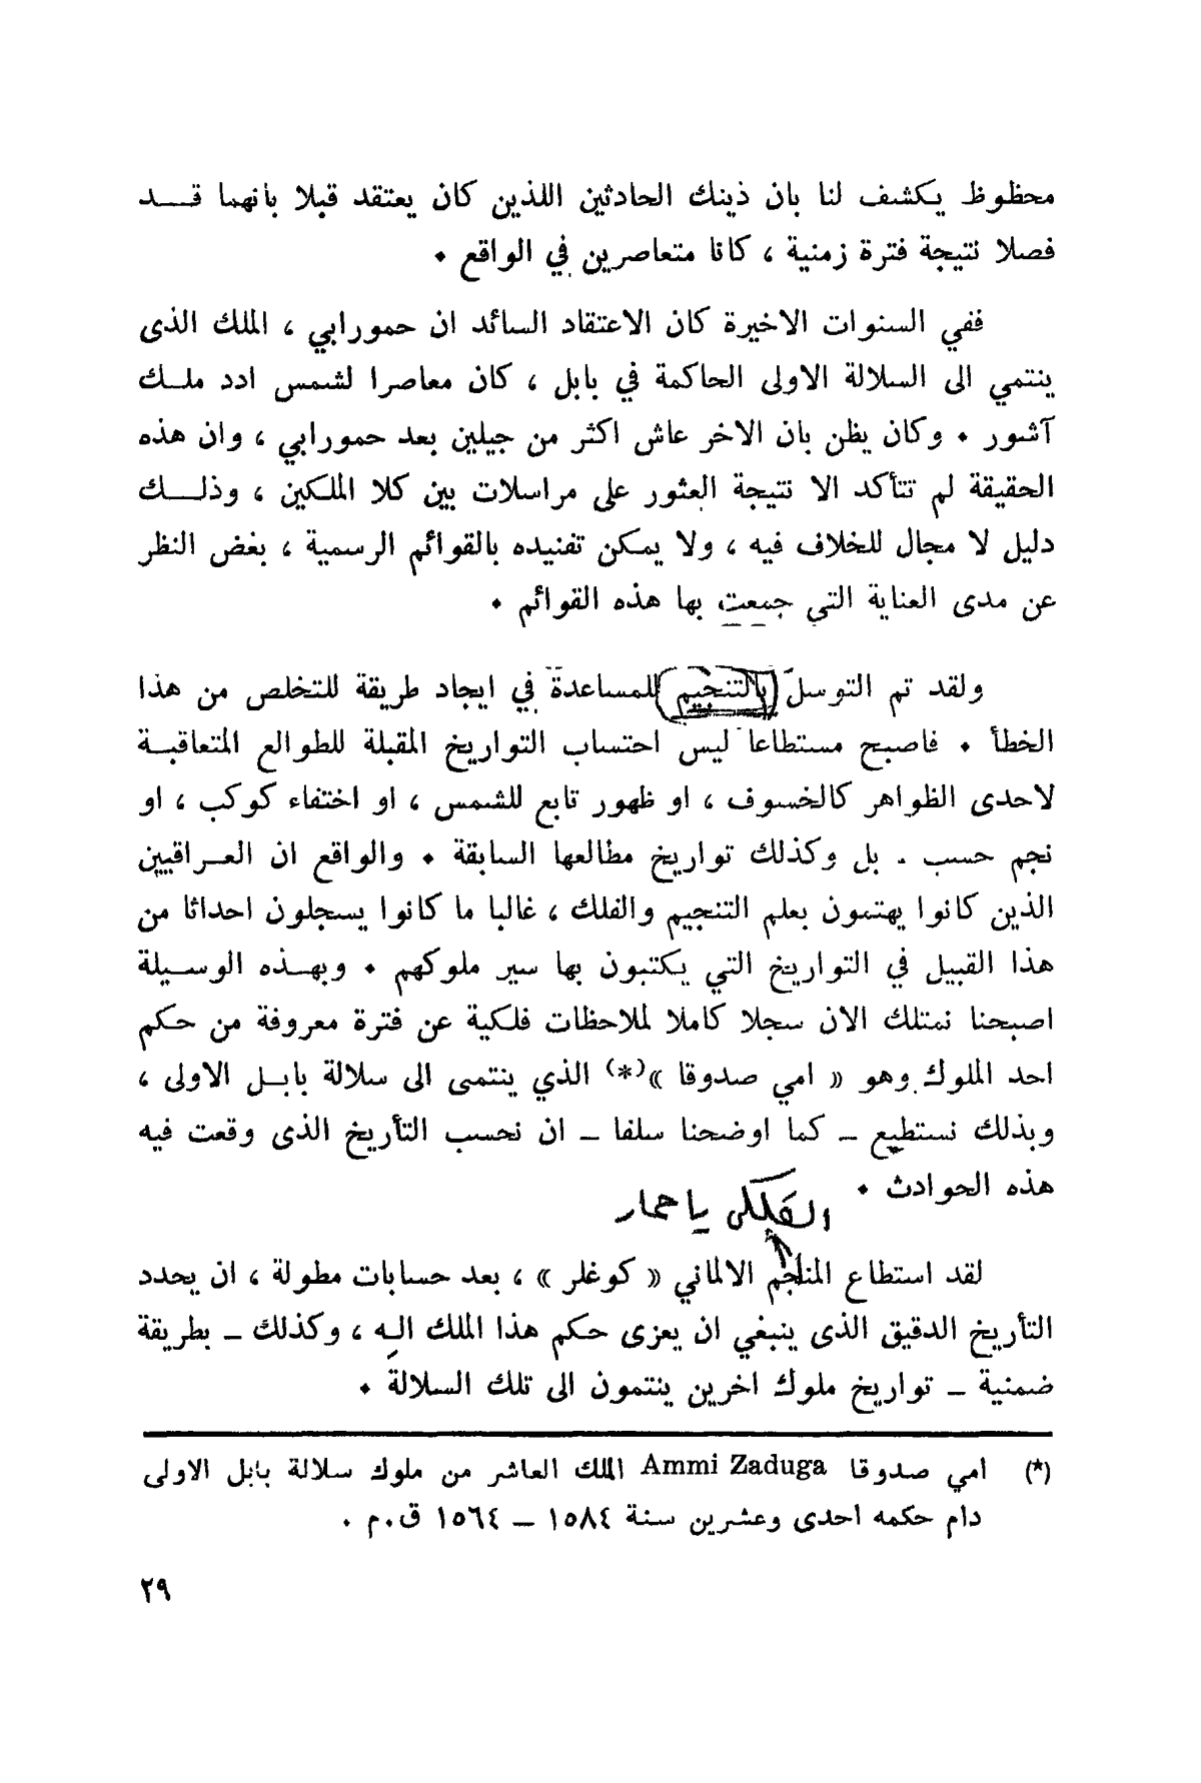 محظوظ يكشف لنا بان ذينك الحادثين اللذين كان يعتقد قبلا بانهما قد
فصلا نتيجة فترة زمنية ، كانا متعاصرين في الواقع .
ففي السنوات الاخيرة كان الاعتقاد السائد ان حمورابي ، الملك الذى
ينتمي الى السلالة الاولى الحاكمة في بابل ، كان معاصرا لشمس ادد ملك
آشور . وكان يظن بان الاخر عاش اكثر من جيلين بعد حمورابي ، وان هذه
الحقيقة لم تتأكد الا نتيجة العثور على مراسلات بين كلا الملكين ، وذلك
دليل لا مجال للخلاف فيه ، ولا يمكن تفنيده بالقوائم الرسمية ، بغض النظر
عن مدى العناية التي جمعت بها هذه القوائم .
ولقد تم التوسل بالتنجيم للمساعدة في ايجاد طريقة للتخلص من هذا
الخطأ . فاصبح مستطاعا ليس احتساب التواريخ المقبلة للطوالع المتعاقبة
لاحدى الظواهر كالخسوف ، او ظهور تابع للشمس ، او اختفاء كوكب ، او
نجم حسب . بل وكذلك تواريخ مطالعها السابقة . والواقع ان العراقيين
الذين كانوا يهتمون بعلم التنجيم والفلك ، غالبا ما كانوا يسجلون احداثا من
هذا القبيل في التواريخ التي يكتبون بها سير ملوكهم . وبهذه الوسيلة
اصبحنا نمتلك الان سجلا كاملا لملاحظات فلكية عن فترة معروفة من حكم
احد الملوك وهو « امي صدوقا »(*) الذي ينتمى الى سلالة بابل الاولى ،
وبذلك نستطيع ـ كما اوضحنا سلفا ـ ان نحسب التأريخ الذى وقعت فيه
هذه الحوادث .
الفلكى يا حمار
لقد استطاع المنجم الالماني « كوغلر » ، بعد حسابات مطولة ، ان يحدد
التأريخ الدقيق الذى ينبغي ان يعزى حكم هذا الملك اليه ، وكذلك ـ بطريقة
ضمنية ـ تواريخ ملوك اخرين ينتمون الى تلك السلالة .
(*) امي صدوقا Ammi Zaduga الملك العاشر من ملوك سلالة بابل الاولى
دام حكمه احدى وعشرين سنة ١٥٨٤ ـ ١٥٦٤ ق.م .
٢٩